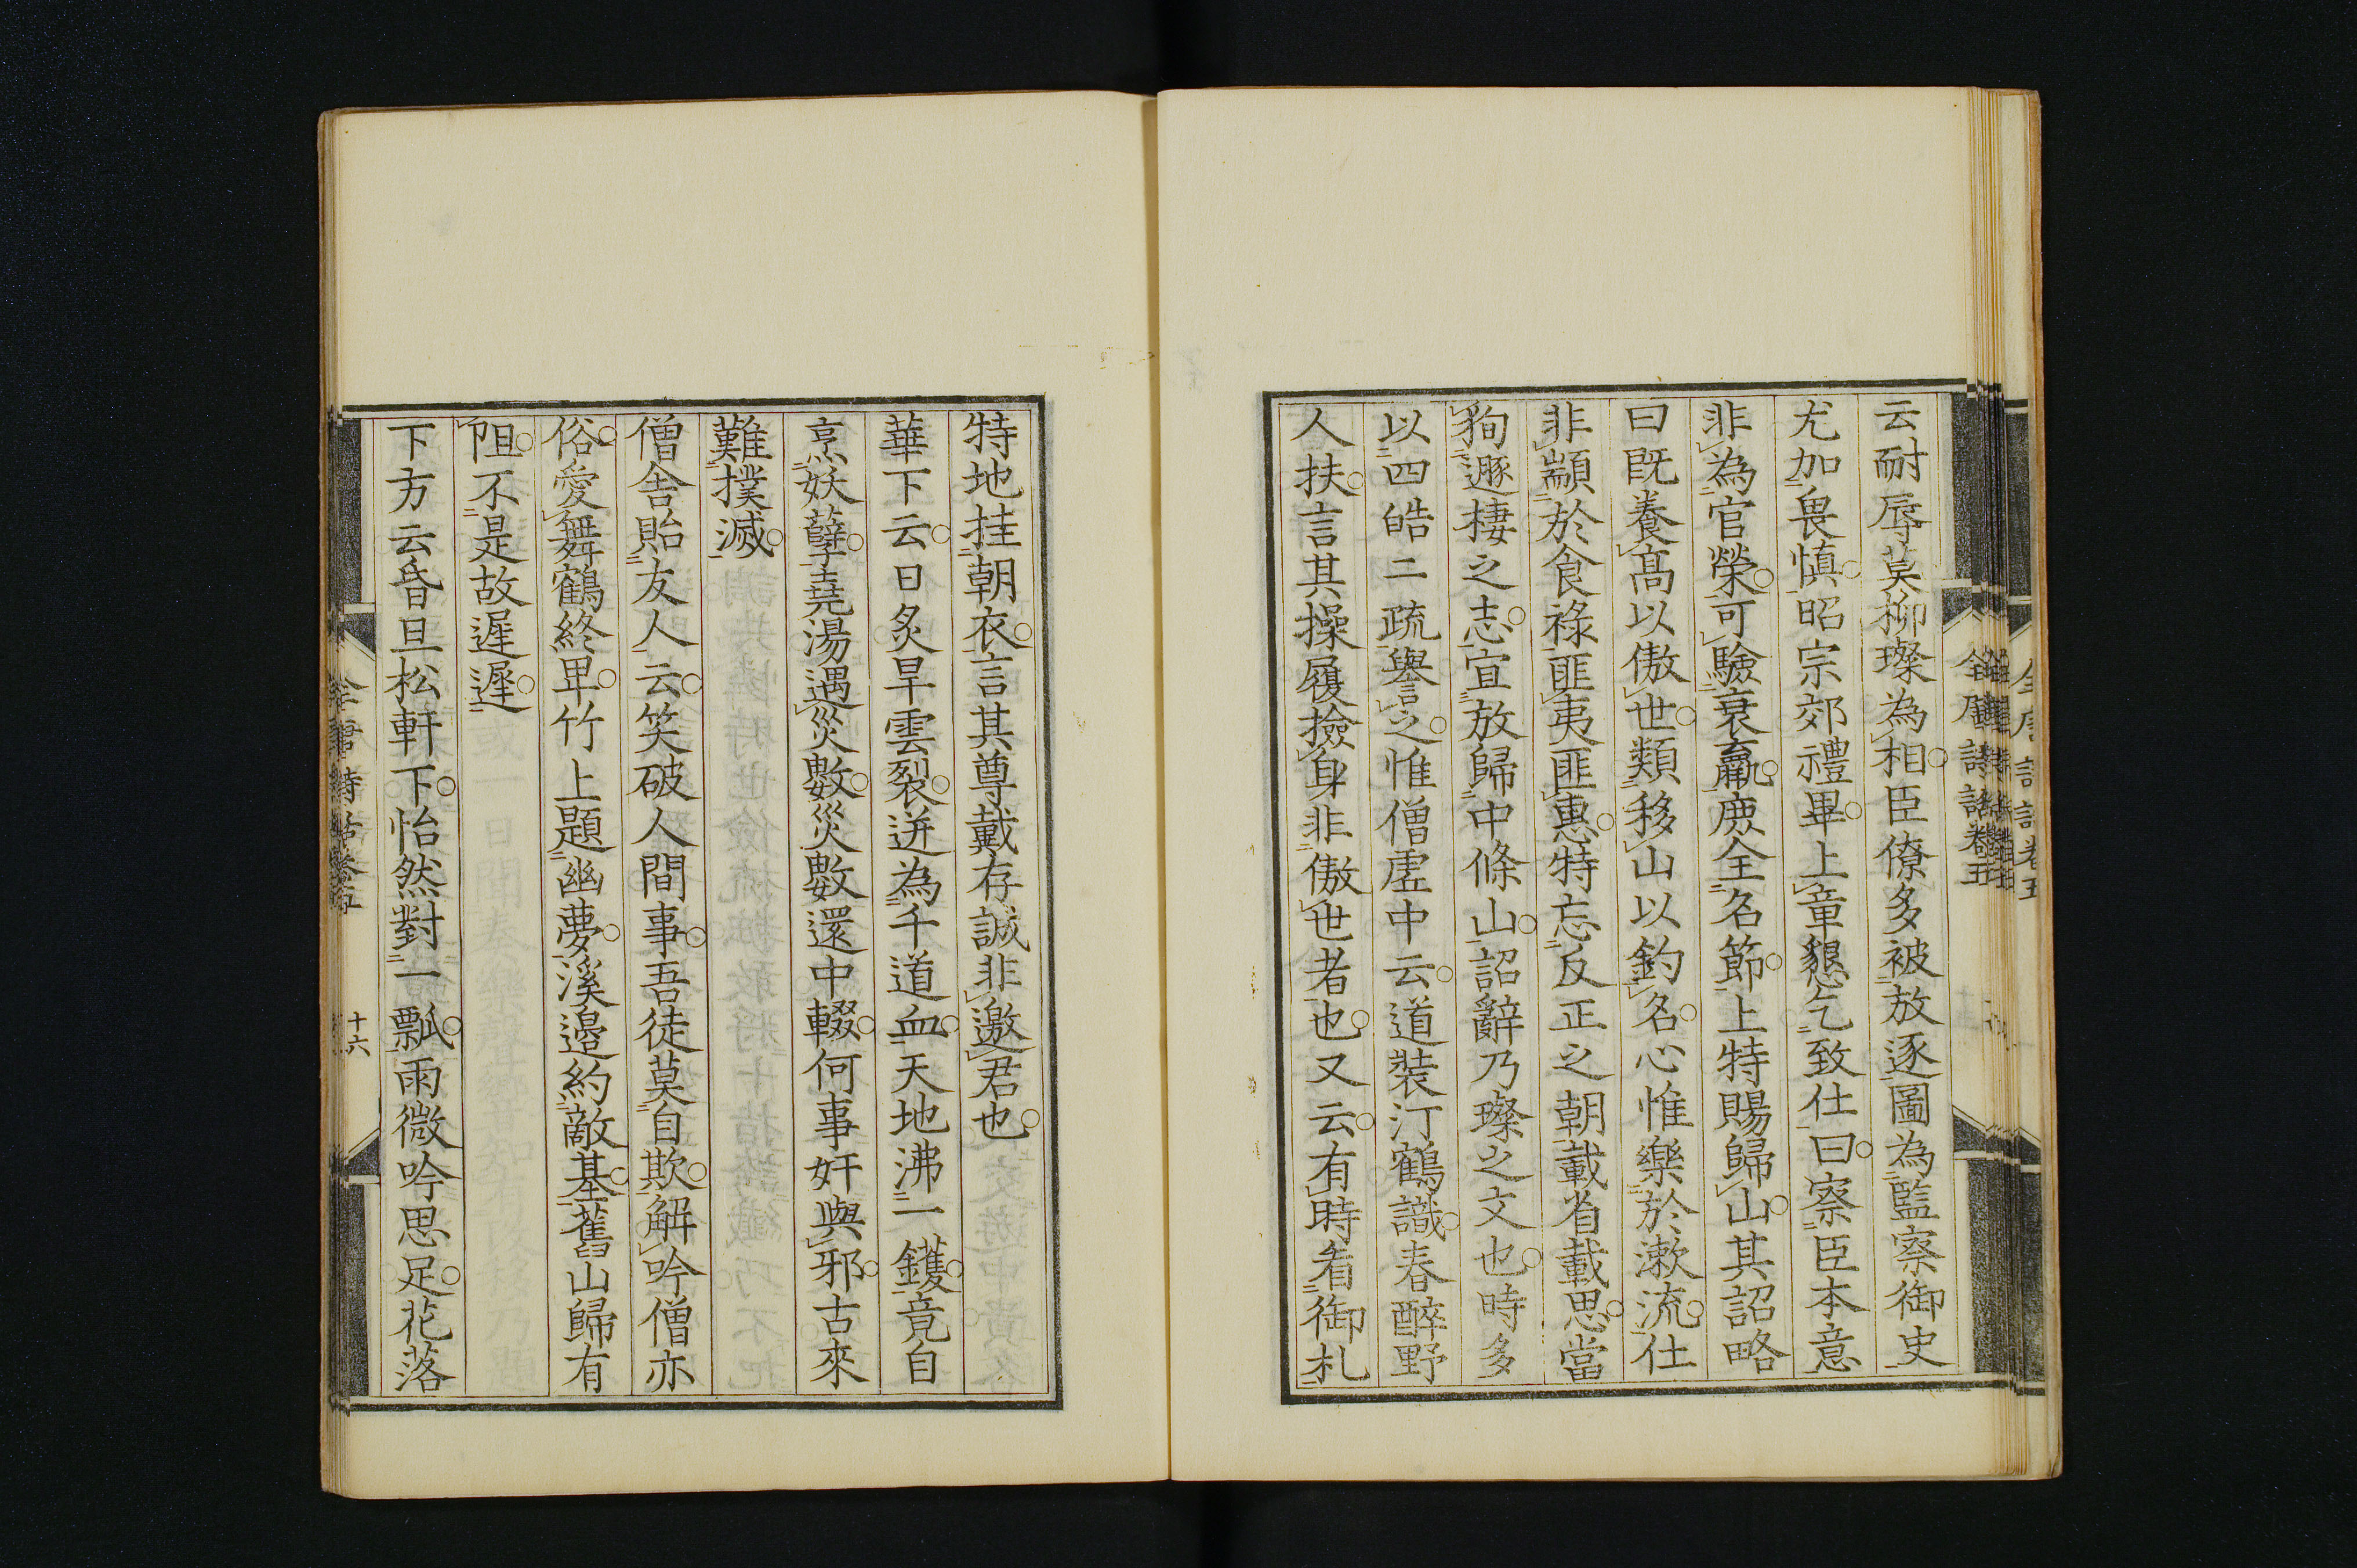 云耐辱莫柳璨為相臣僚多被放逐圖為監察御史
尤加畏慎昭宗郊禮畢上章懇乞致仕曰察臣本意
非為官榮可驗衰羸庶全名節上特賜歸山其詔略
曰既養高以傲世類移山以釣名心惟樂於漱流仕
非顓於食祿匪夷匪惠特忘反正之朝載省載思當
狥遯棲之志宜放歸中條山詔辭乃璨之文也時多
以四皓二疏譽之惟僧虛中云道裝汀鶴識春醉野
人扶言其操履撿身非傲世者也又云有時看御札
特地挂朝衣言其尊戴存誠非邀君也
華下云日炙旱雲裂迸為千道血天地沸一鑊竟自
烹妖孽堯湯遇災數災數還中輟何事奸與邪古來
難撲滅
僧舍貽友人云笑破人間事吾徒莫自欺解吟僧亦
俗愛舞鶴終卑竹上題幽夢溪邉約敵基舊山歸有
阻不是故遲遲
下方云昏旦松軒下怡然對一瓢雨微吟思足花落
全唐詩話卷五
十六